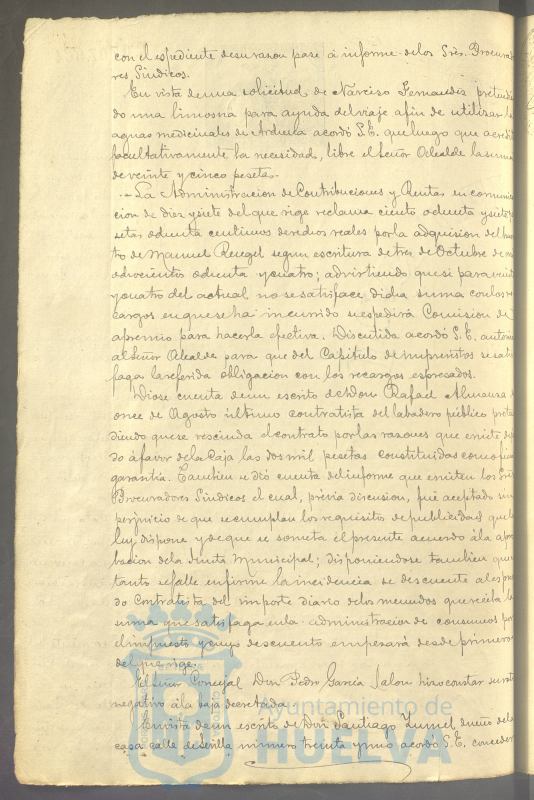 con el espediente de su razon pase á informe de los Sres. Procurado
res Sindicos.
En vista de una solicitud de Narciso Fernandez pretendien
do una limosna para ayuda del viaje a fin de utilizar las
aguas medicinales de acordó S.E. que luego que acredite
facultativamente la necesidad, libre el Señor Alcalde la suma
de veinte y cinco pesetas.
La Administracion de Contribuciones y Rentas en comunica
cion de diez y siete del que rige reclama ciento ochenta y siete pe
setas ochenta centimos derechos reales por la adquision del
tro de Manuel Rengel segun escritura de tres de Octubre de mil
ochocientos ochenta y cuatro; advirtiendo que si para veinte
y cuatro del actual no se satisface dicha suma con los re
cargos en que se ha incurrido se espedirá Comision de
apremio para hacerla efectiva. Discutida acordó S.E. autorizar
al Señor Alcalde para que del Capitulo de imprevistos se satis
faga la referida obligacion con los recargos espresados.
Diose cuenta de un escrito de Don Rafael Almansa
once de Agosto ultimo contratista del labadero público preten
diendo que se rescinda el contrato por las razones que emite
do á favor de la Caja las dos mil pesetas constituidas como
garantia. Tambien se dió cuenta del informe que emiten los Sres
Procuradores Sindicos el cual, prévia discusion, fué aceptado sin
perjuicio de que se cumplan los requisitos de publicidad que la
ley dispone y de que se someta el presente acuerdo á la apro
bacion de la Junta Municipal; disponiendose tambien que
tanto se falle en firme la incidencia se descuente al espresa
do Contratista del importe diario de los menudos que reciba la
suma que satisfaga en la administracion de consumos por
el impuesto y cuyo descuento empezará desde primero
del que rige.
El Señor Concejal Don Pedro Garcia Jalon hizo constar su voto
negativo á la baja decretada.
En vista de un escrito de Don Santiago dueño de la
casa calle de Sevilla numero treinta y uno acordó S.E. conceder
Ayuntamiento de
HUELVA